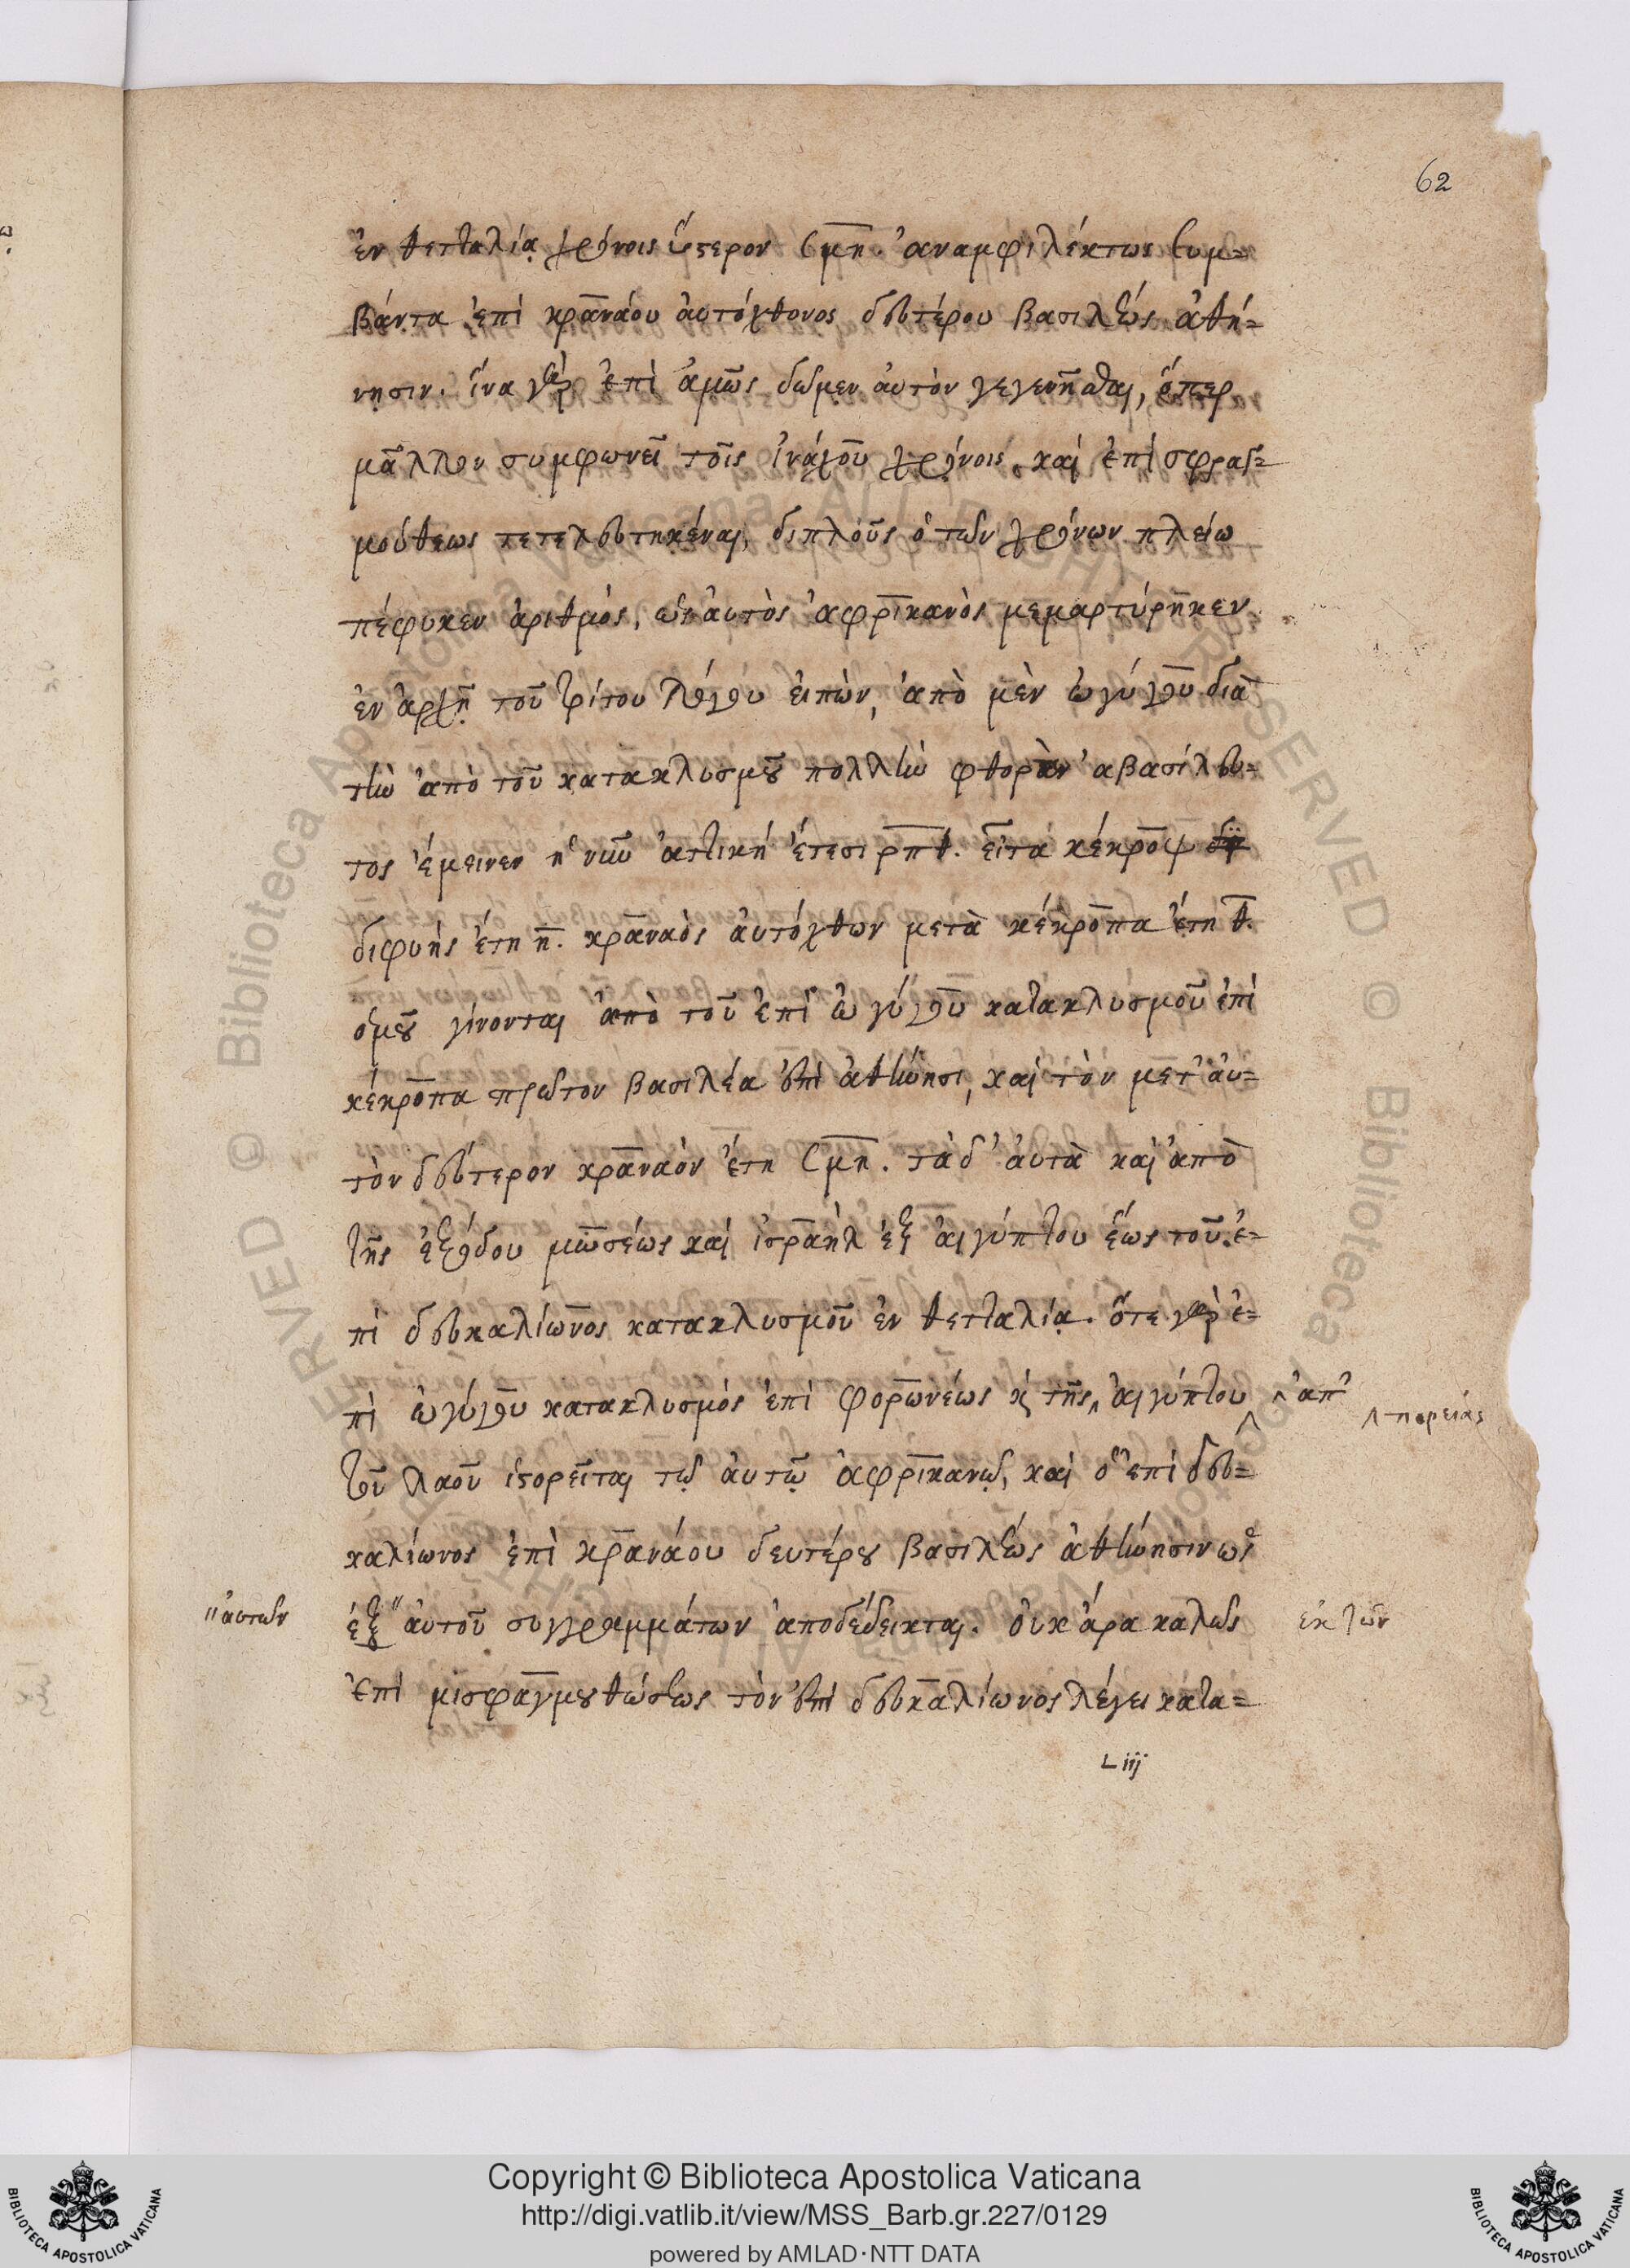 62
ἐν θετταλίᾳ χρόνοις ὕστερον ϛμη. ἀναμφιλέκτως συμ=
βάντα ἐπὶ κραναοῦ αὐτόχθονος δευτέρου βασιλέως ἀθή=
νησιν. ἵνα γὰρ ἐπὶ ἀμῶς δῶμεν αὐτὸν γεγενῆσθαι, ὅπερ
μᾶλλον συμφωνεῖ τοῖς ἰνάχου χρόνοις, καὶ ἐπὶ σφραγ=
μούθεως τετελευτηκέναι, διπλοῦς ὁ τῶν χρόνων πλείω
πέφυκεν ἀριθμός, ὡς αὐτὸς ἀφρικανὸς μεμαρτύρηκεν
ἐν ἀρχῇ τοῦ τρίτου λόγου εἰπών, ἀπὸ μὲν ὠγύγου διὰ
τὴν ἀπὸ τοῦ κατακλυσμοῦ πολλὴν φθορὰν ἀβασίλευ=
τος ἔμεινεν ἡ νῦν ἀττική ἔτεσι ρπθ. εἶτα κέκροψ
διφυὴς ἔτη ν. κραναὸς αὐτόχθων μετὰ κέκροπα ἔτη θ.
ὁμοῦ γίνονται ἀπὸ τοῦ ἐπὶ ὠγύγου κατακλυσμοῦ ἐπὶ
κέκροπα πρῶτον βασιλέα ἐπὶ ἀθήνησι, καὶ τὸν μετ' αὐ=
τὸν δεύτερον κραναὸν ἔτη ϛμη. τὰ δ' αὐτὰ καὶ ἀπὸ
τῆς ἐξόδου μωσέως καὶ ἰσραὴλ ἐξ αἰγύπτου ἕως τοῦ ἐ=
πὶ δευκαλίωνος κατακλυσμοῦ ἐν θετταλίᾳ. ὅτε γὰρ ἐ=
πὶ ὠγύγου κατακλυσμὸς ἐπὶ φορωνέως κ τῆς ‸ αἰγύπτου ‸ ‸ ἀπ' ‸ πορείας
τοῦ λαοῦ ἱστορεῖται τῷ αὐτῷ ἀφρικανῷ, καὶ ὁ ἐπὶ δευ=
καλίωνος ἐπὶ κραναοῦ δευτέρου βασιλέως ἀθήνησιν ὡς
" αὐτῶν ἐξ " αὐτοῦ συγγραμμάτων ἀποδέδεικται. οὐκ ἄρα καλῶς ἐκ τῶν
ἐπὶ μισφραγμουθώσεως τὸν ἐπὶ δευκαλίωνος λέγει κατα=
L iij
Copyright © Biblioteca Apostolica Vaticana
http://digi.vatlib.it/view/MSS_Barb.gr.227/0129
powered by AMLAD·NTT DATA
BIBLIOTECA APOSTOLICA VATICANA
BIBLIOTECA APOSTOLICA VATICANA